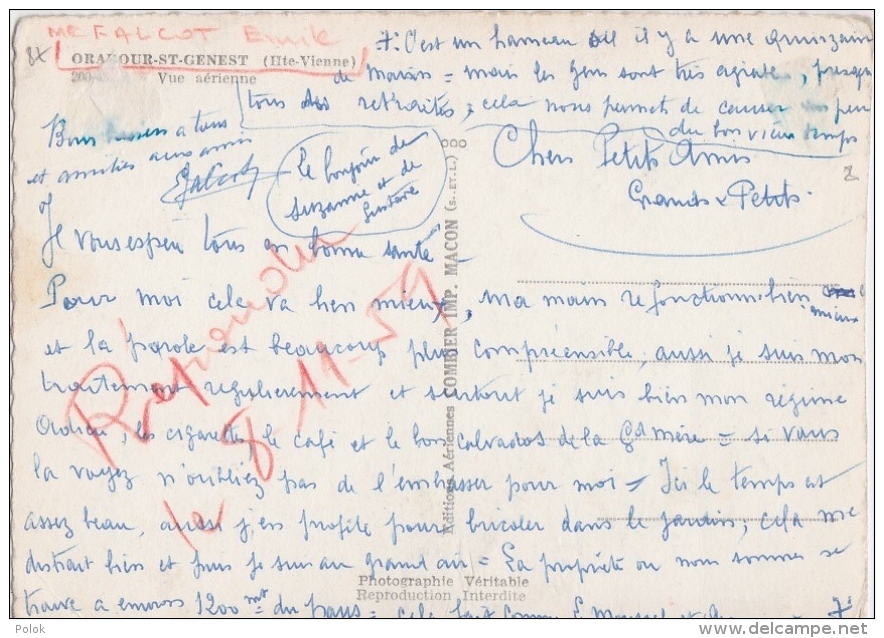 Mr FALCOT Emile
ORADOUR-ST-GENEST (Hte-Vienne)
Vue aérienne
7: C'est un hameau où il y a une quinzaine
de maison = mais les gens sont très agréables, presque
tous des retraités; cela nous permet de causer un peu
du bon vieux temps
Bons baisers a tous
et amitiés aux amis
EFalcot
Le bonjour de
Suzanne et de
Gustave
Chers Petits Amis
Grands & Petits.
Je vous espère tous en bonne santé
Pour moi cela va bien mieux, ma main refonctionne bien
mieux
et la parole est beaucoup plus compréensible, aussi je suis mon
traitement regulierement et surtout je suis bien mon régime
Adieu, les cigarettes, le café et le bon calvados de la Gd mère = si vous
la voyez n'oubliez pas de l'embrasser pour moi = Ici le temps est
assez beau, aussi j'en profite pour bricoler dans le jardin, cela me
distrait bien et puis je suis au grand air = La propriété ou nous sommes se
trouve a environ 1200 mt du pays = cela fait comme
7:
Repondu
le 8-11-59
Editions Aériennes COMBIER IMP. MACON (S.-ET-L.)
Photographie Véritable
Reproduction Interdite
Polok
delcampe.net